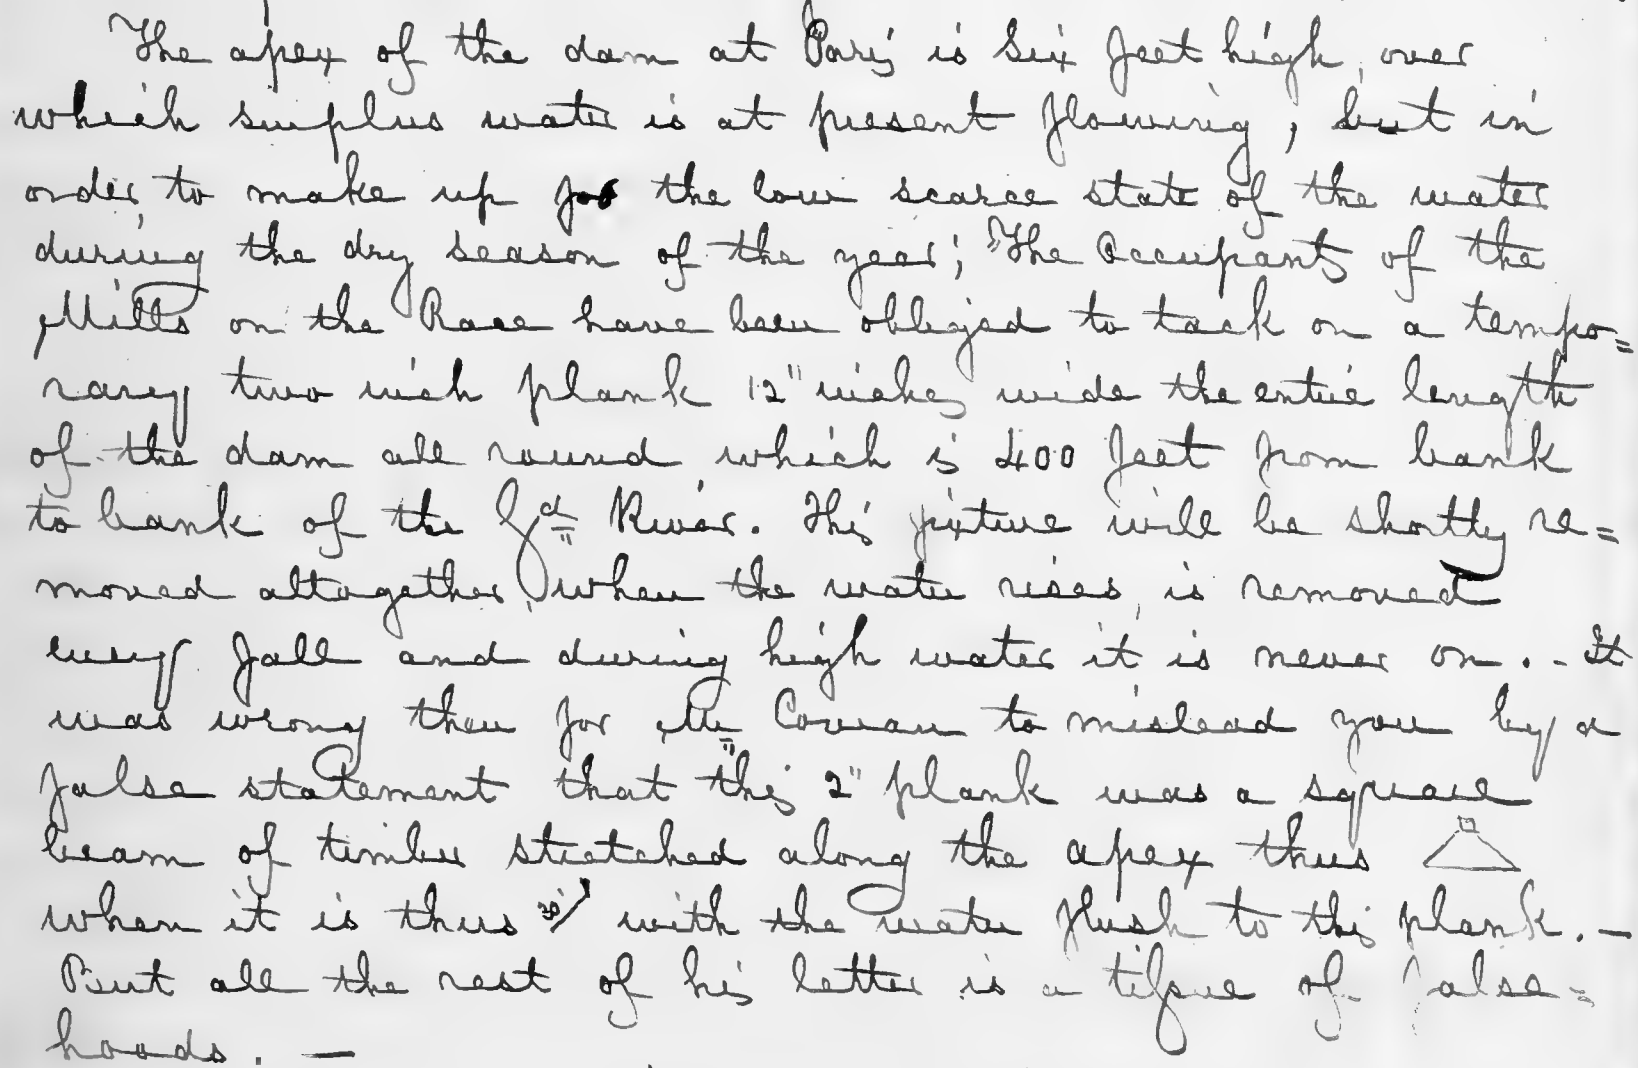 The apex of the dam at Paris is six feet high, over
which surplus water is at present flowing; but in
order to make up for the low scarce state of the water
during the dry season of the year; "The Occupants of the
Mills on the Race have been obliged to tack on a tempo=
rary two inch plank 12" inches wide the entire length
of the dam all round which is 400 feet from bank
to bank of the Gd River. This fixture will be shortly re=
moved altogether, when the water rises, is removed
every fall and during high water it is never on. - It
was wrong then for Mr Cowan to mislead you by a
false statement that this 2" plank was a square
beam of timber stretched along the apex thus
when it is thus with the water flush to this plank. —
But all the rest of his letter is a tissue of false=
hoods. —